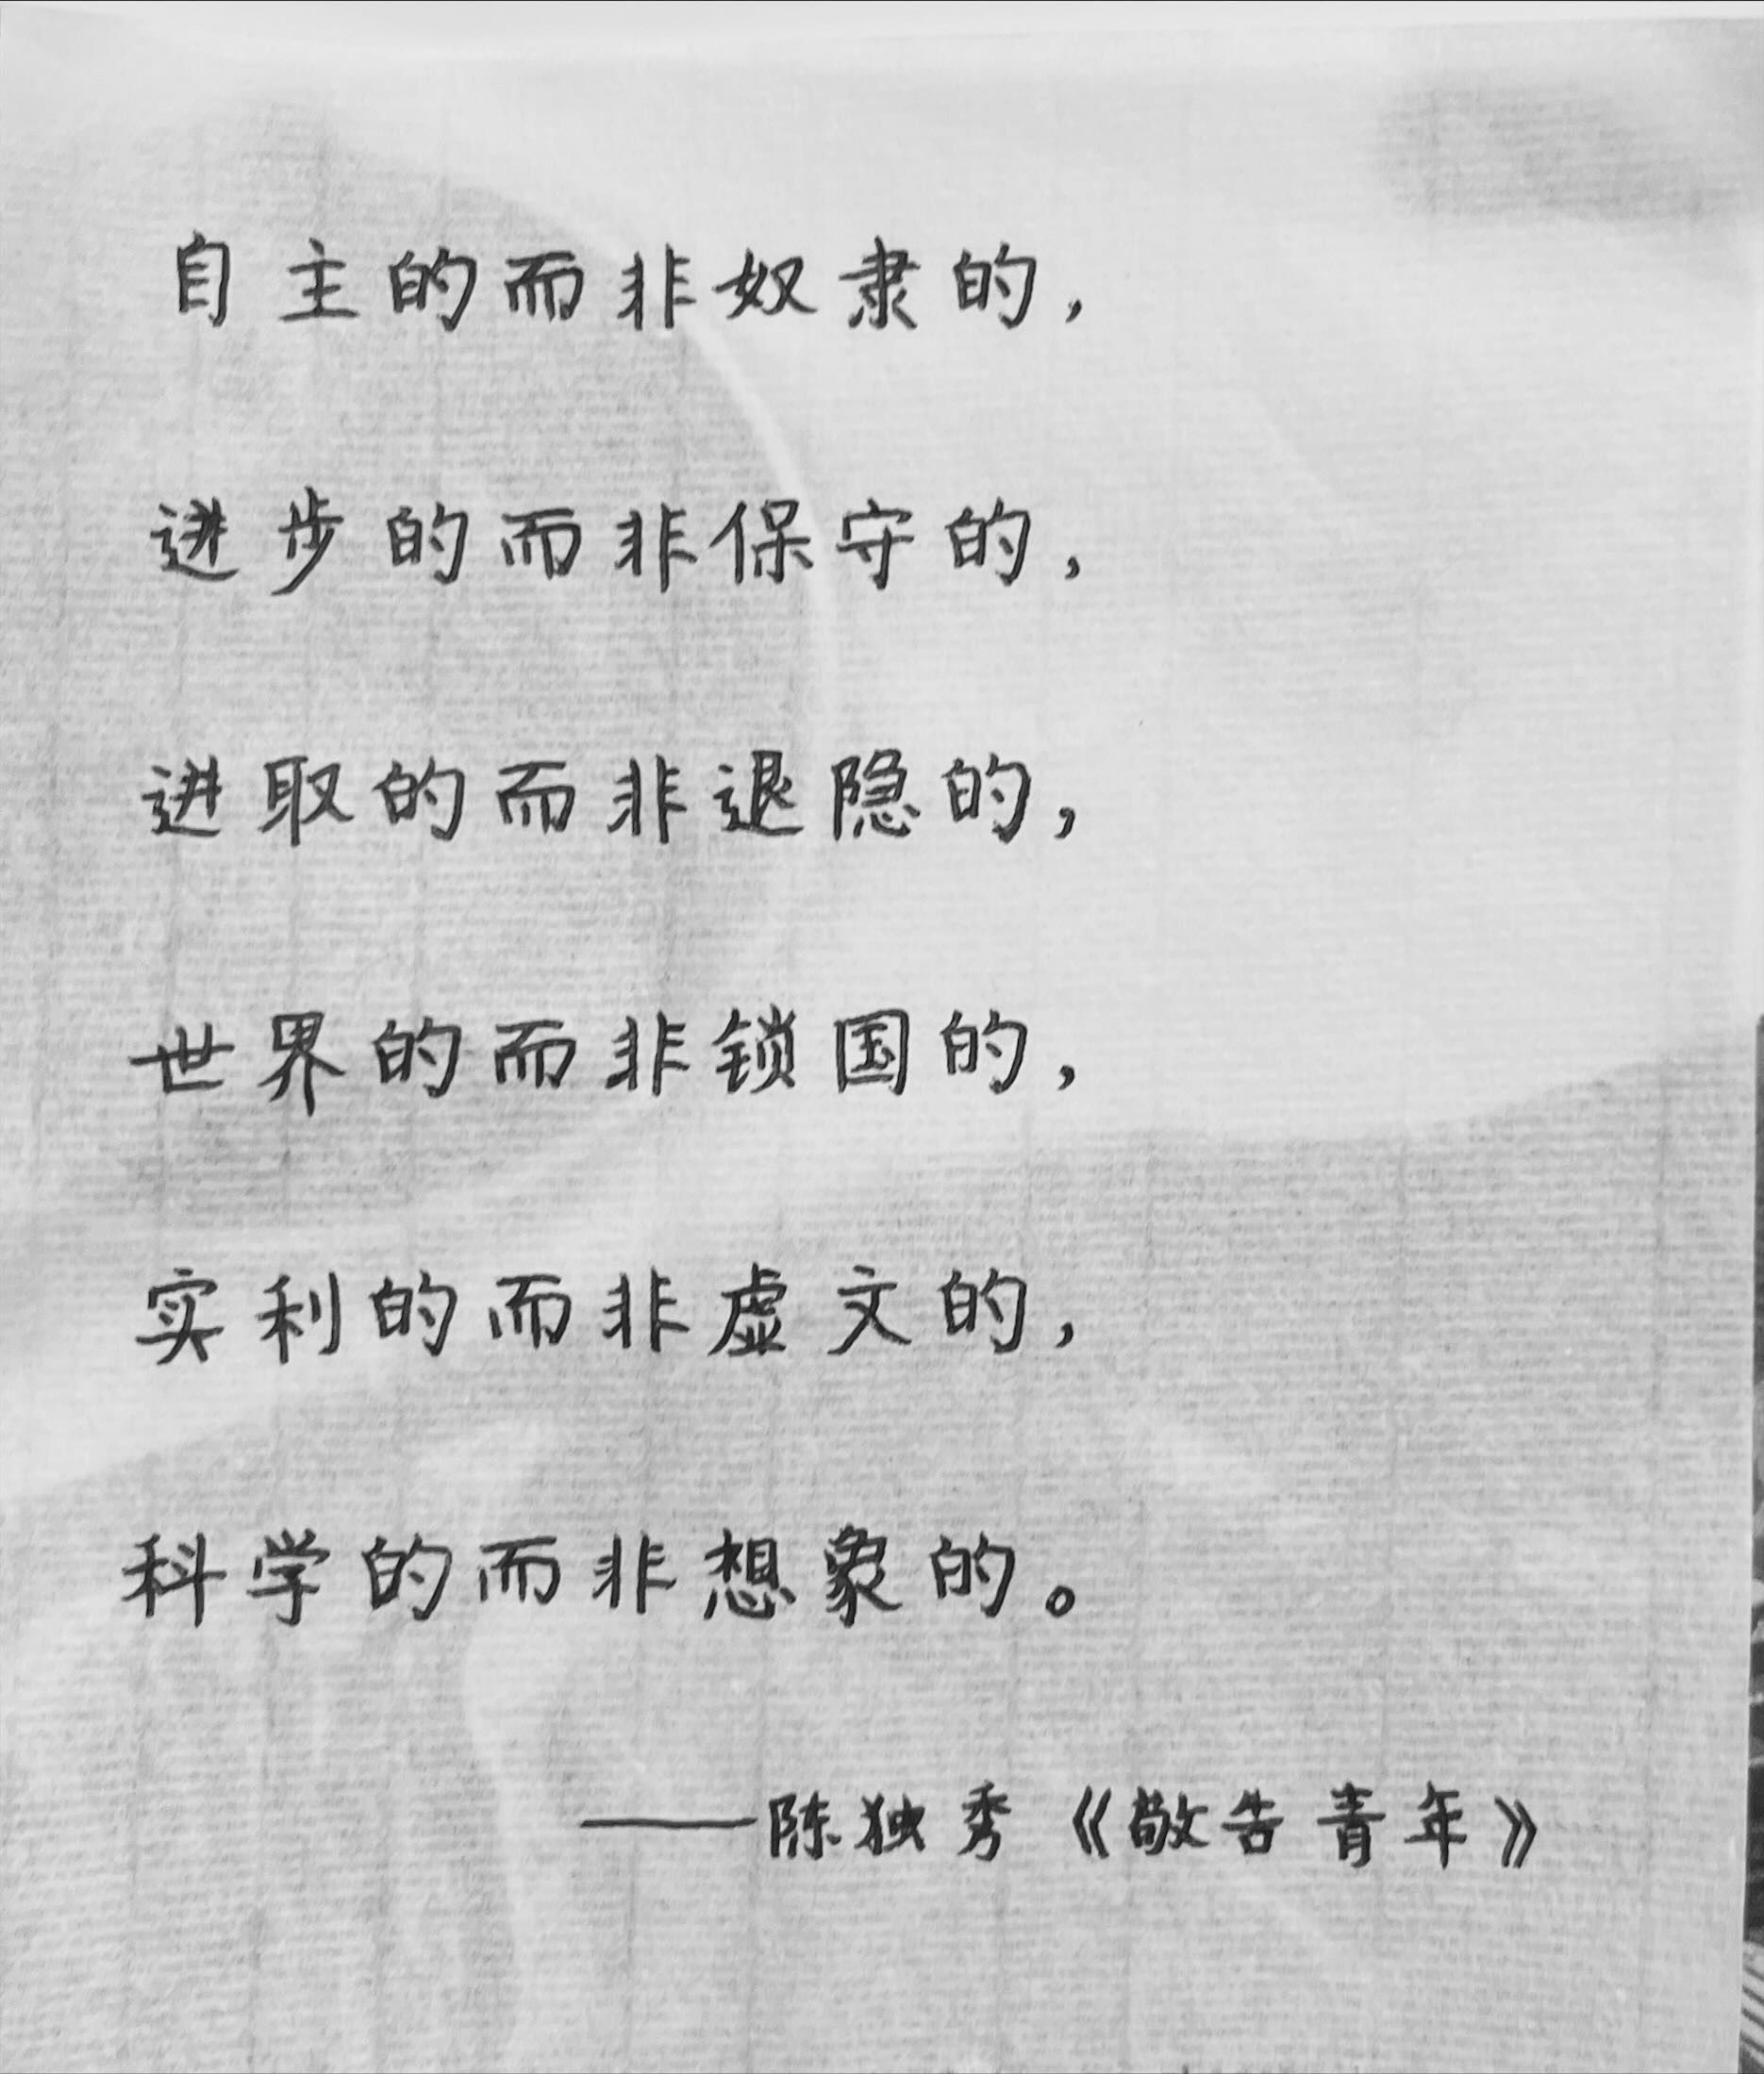 自主的而非奴隶的，
进步的而非保守的，
进取的而非退隐的，
世界的而非锁国的，
实利的而非虚文的，
科学的而非想象的。
——陈独秀《敬告青年》